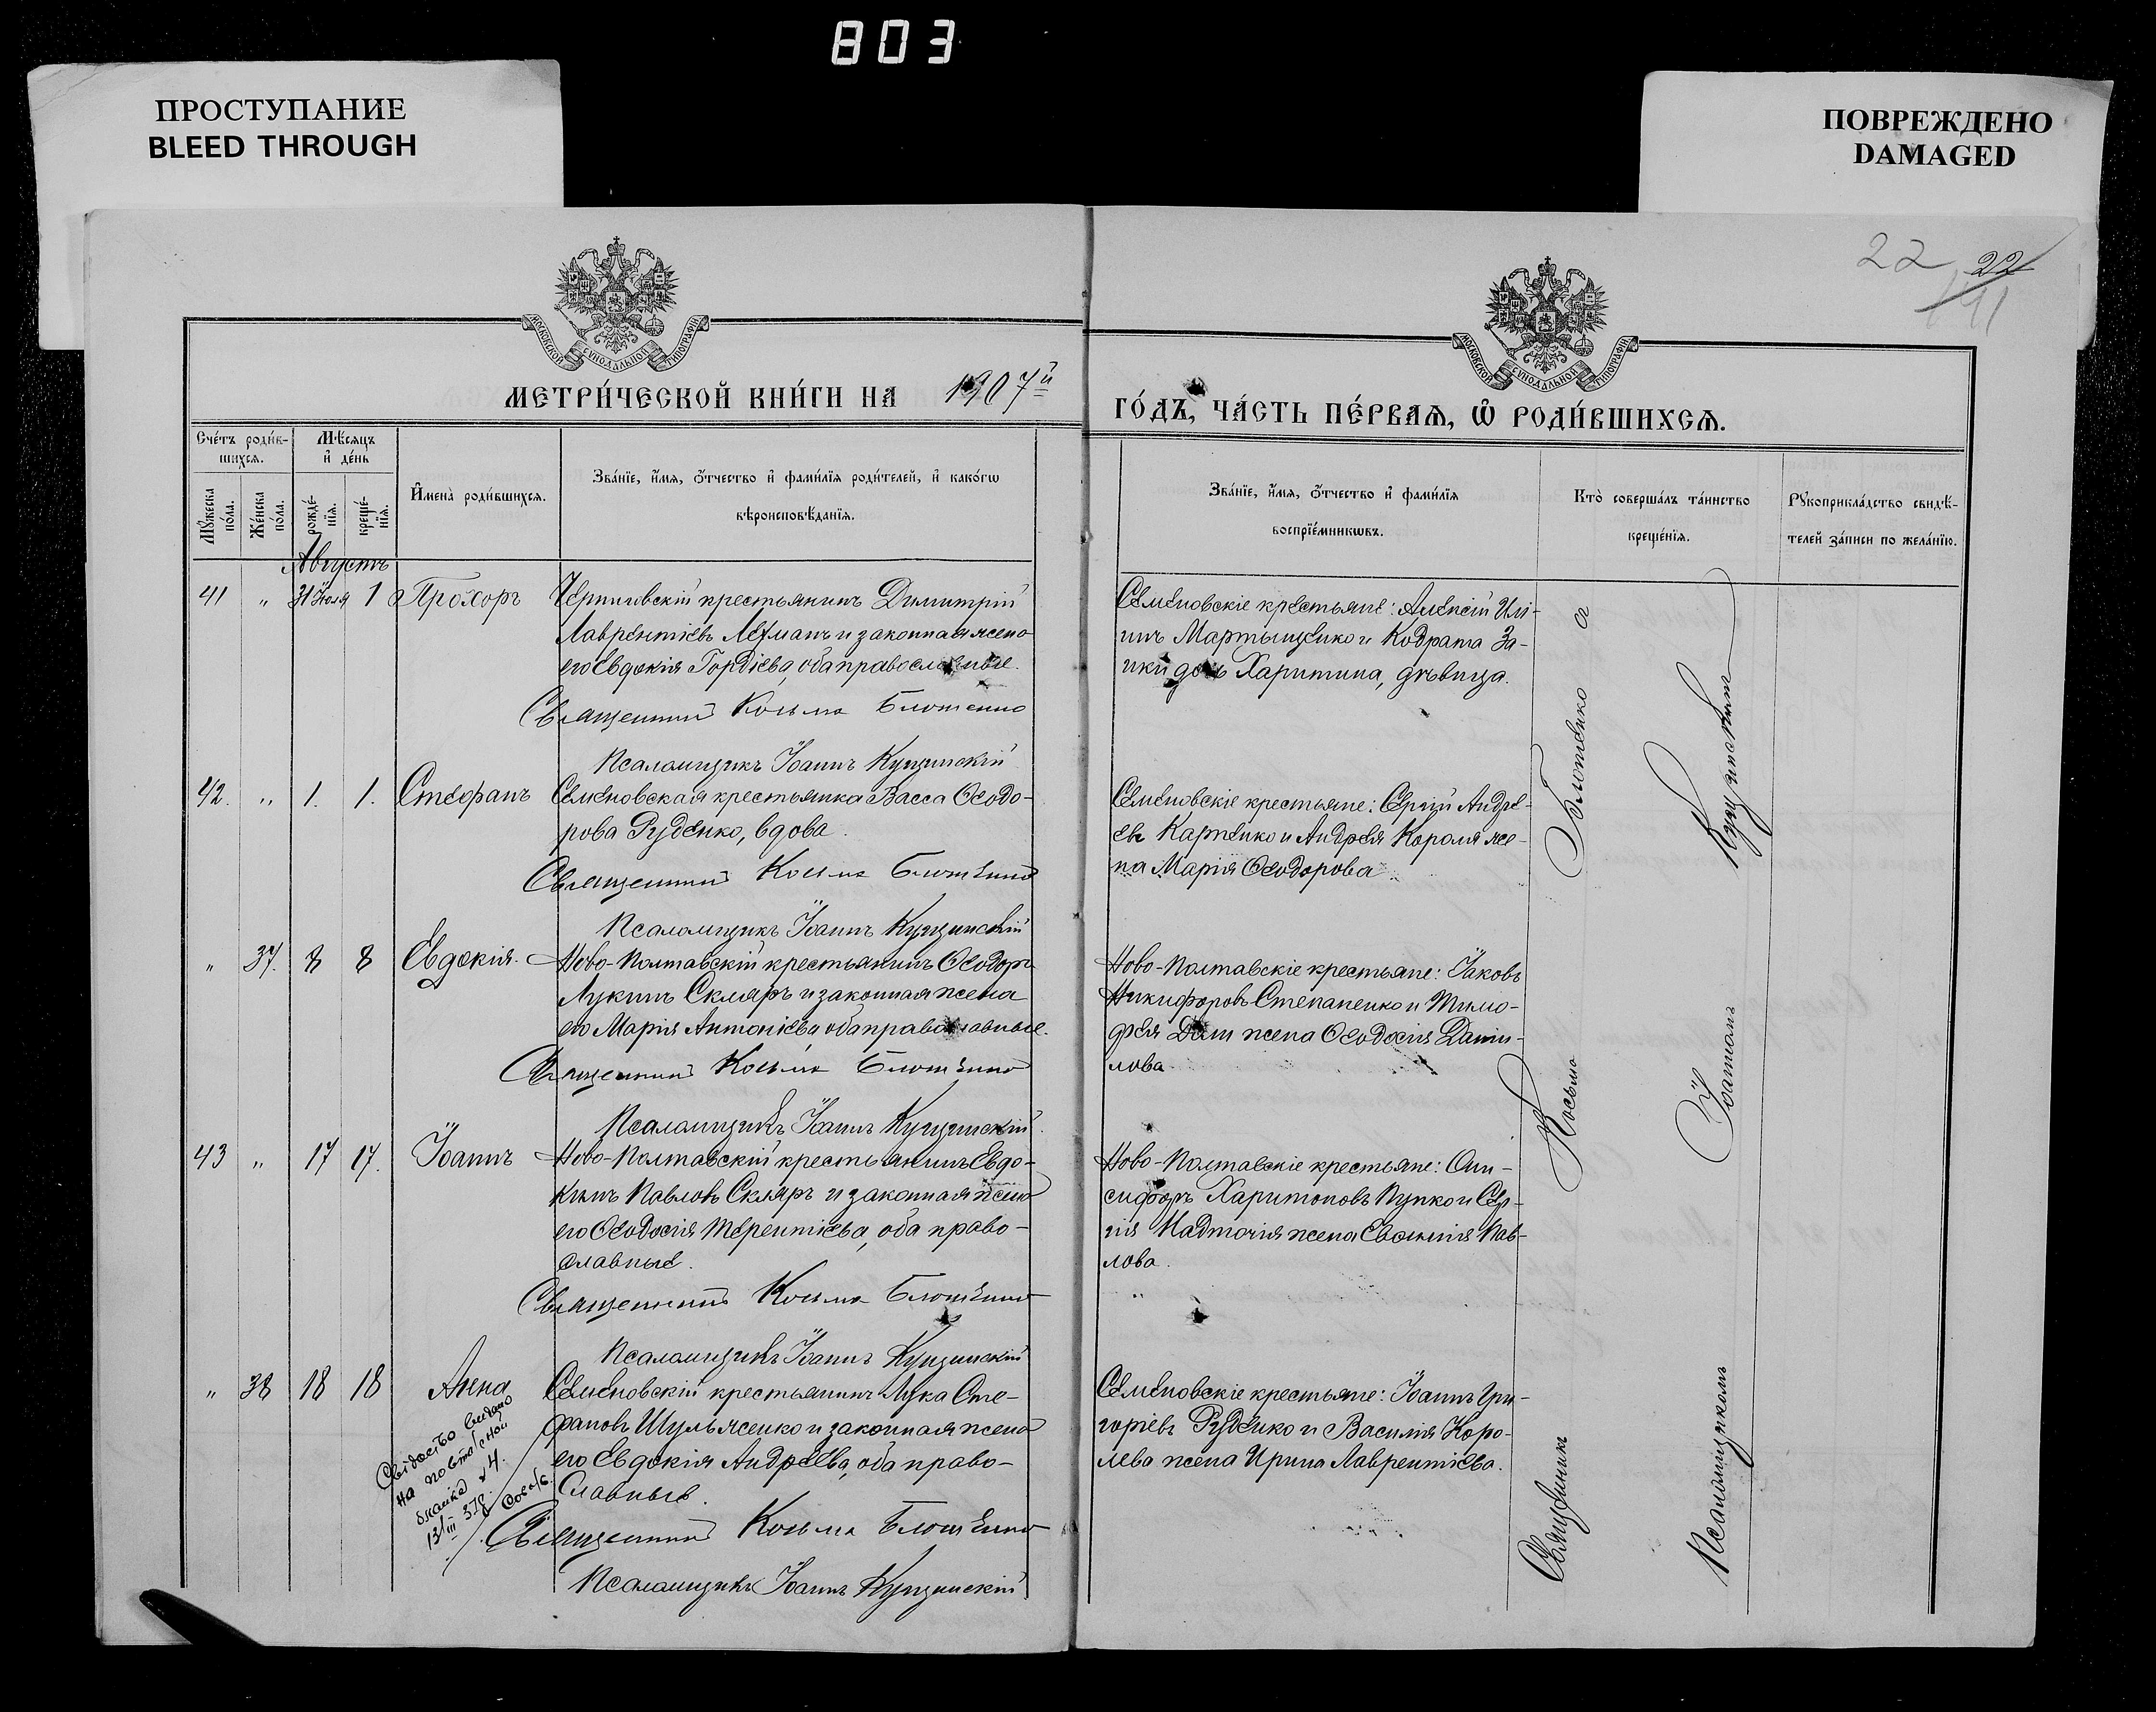 803
ПРОСТУПАНИЕ
BLEED THROUGH
ПОВРЕЖДЕНО
DAMAGED
22 22
МОСКОВСКОЙ СѴНОДАЛЬНОЙ ТИПОГРАФІИ
МОСКОВСКОЙ СѴНОДАЛЬНОЙ ТИПОГРАФІИ
МЕТРИ́ЧЕСКОЙ КНИ́ГИ НА 1907й
ГО́ДЪ, ЧА́СТЬ ПЕ́РВАѦ, Ѿ РОДИ́ВШИХСѦ.
Сче́тъ роди́в-
шихсѧ.
Мꙋ́жеска по́ла.
Же́нска по́ла.
Мѣ́сѧцъ
и҆ де́нь
рожде́-
нїѧ.
креще́-
нїѧ.
И҆мена̀ роди́вшихсѧ.
Зва́нїе, и҆́мѧ, ѻ҆́тчество и҆ фами́лїѧ роди́телей, и҆ како́гѡ
вѣроисповѣ́данїѧ.
Зва́нїе, и҆́мѧ, ѻ҆́тчество и҆ фами́лїѧ
воспрїе́мникѡвъ.
Кто̀ соверша́лъ та́инство
креще́нїѧ.
Рꙋкоприкла́дство свидѣ́-
телей за́писи по жела́нїю.
Августъ
41 " 31 Іюля 1 Прохоръ
Черниговскій крестьянинъ Димитрій
Лаврентіевъ Лехманъ и законная жена
его Евдокія Гордіева, оба православные.
Священникъ Косьма Блотенко
Псаломщикъ Іоаннъ Кущинскій
Семеновскіе крестьяне: Алексій Иль-
инъ Мартыщенко и Кодрата За-
ики дочь Харитина, дѣвица.
42. " 1. 1. Стефанъ
Семеновская крестьянка Васса Ѳеодо-
рова Руденко, вдова.
Священникъ Косьма Блотенко
Псаломщикъ Іоаннъ Кущинскій
Семеновскіе крестьяне: Сергій Андре-
евъ Карпенко и Андрея Короля же-
на Марія Ѳеодорова
" 37. 8 8 Евдокія.
Ново-Полтавскій крестьянинъ Ѳеодоръ
Лукинъ Скляръ и законная жена
его Марія Антоніева, оба православные.
Священникъ Косьма Блотенко
Псаломщикъ Іоаннъ Кущинскій
Ново-Полтавскіе крестьяне: Іаковъ
Никифоровъ Степаненко и Тимо-
фея жена Ѳеодосія Дани-
лова
43 " 17 17. Іоаннъ
Ново-Полтавскій крестьянинъ Евдо-
кимъ Павловъ Скляръ и законная жена
его Ѳеодосія Терентіева, оба право-
славные.
Священникъ Косьма Блотенко
Псаломщикъ Іоаннъ Кущинскій
Ново-Полтавскіе крестьяне: Они-
сифоръ Харитоновъ Пупко и Сер-
гія Надточія жена Евфимія Пав-
лова.
" 38 18 18 Анна
Семеновскій крестьянинъ Лука Сте-
фановъ Шульженко и законная жена
его Евдокія Андреева, оба право-
славные.
Священникъ Косьма Блотенко
Псаломщикъ Іоаннъ Кущинскій
Семеновскіе крестьяне: Іоаннъ Гри-
горіевъ Руденко и Василія Коро-
лева жена Ирина Лаврентіева.
Священникъ Косьма Блотенко съ
Псаломщикомъ Іоанномъ Кущинскимъ